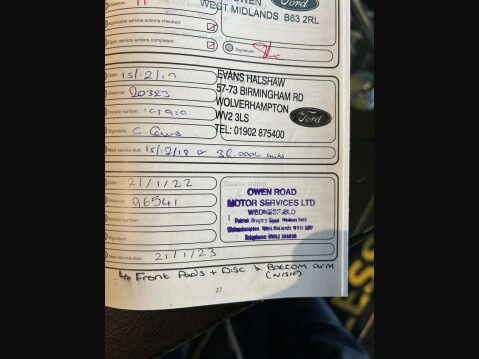 OWEN
WEST MIDLANDS B63 2RL
Ford
Distance:
Applicable service actions checked:
Open service actions completed:
Signature:
Date: 15/12/17
Distance: 20323
Invoice number:
Signature:
Next service due: 15/12/18 or 36,000k miles
EVANS HALSHAW
57-73 BIRMINGHAM RD
WOLVERHAMPTON
WV2 3LS
TEL: 01902 875400
Ford
Date: 21/1/22
Distance: 96541
Invoice number:
Signature:
Next service due: 21/1/23
Dealer stamp
OWEN ROAD
MOTOR SERVICES LTD
WEDNESFIELD
Wolverhampton, West Midlands WV11
Telephone: 01902
Front Pads + Disc & Bottom arm
(N/S/F)
27